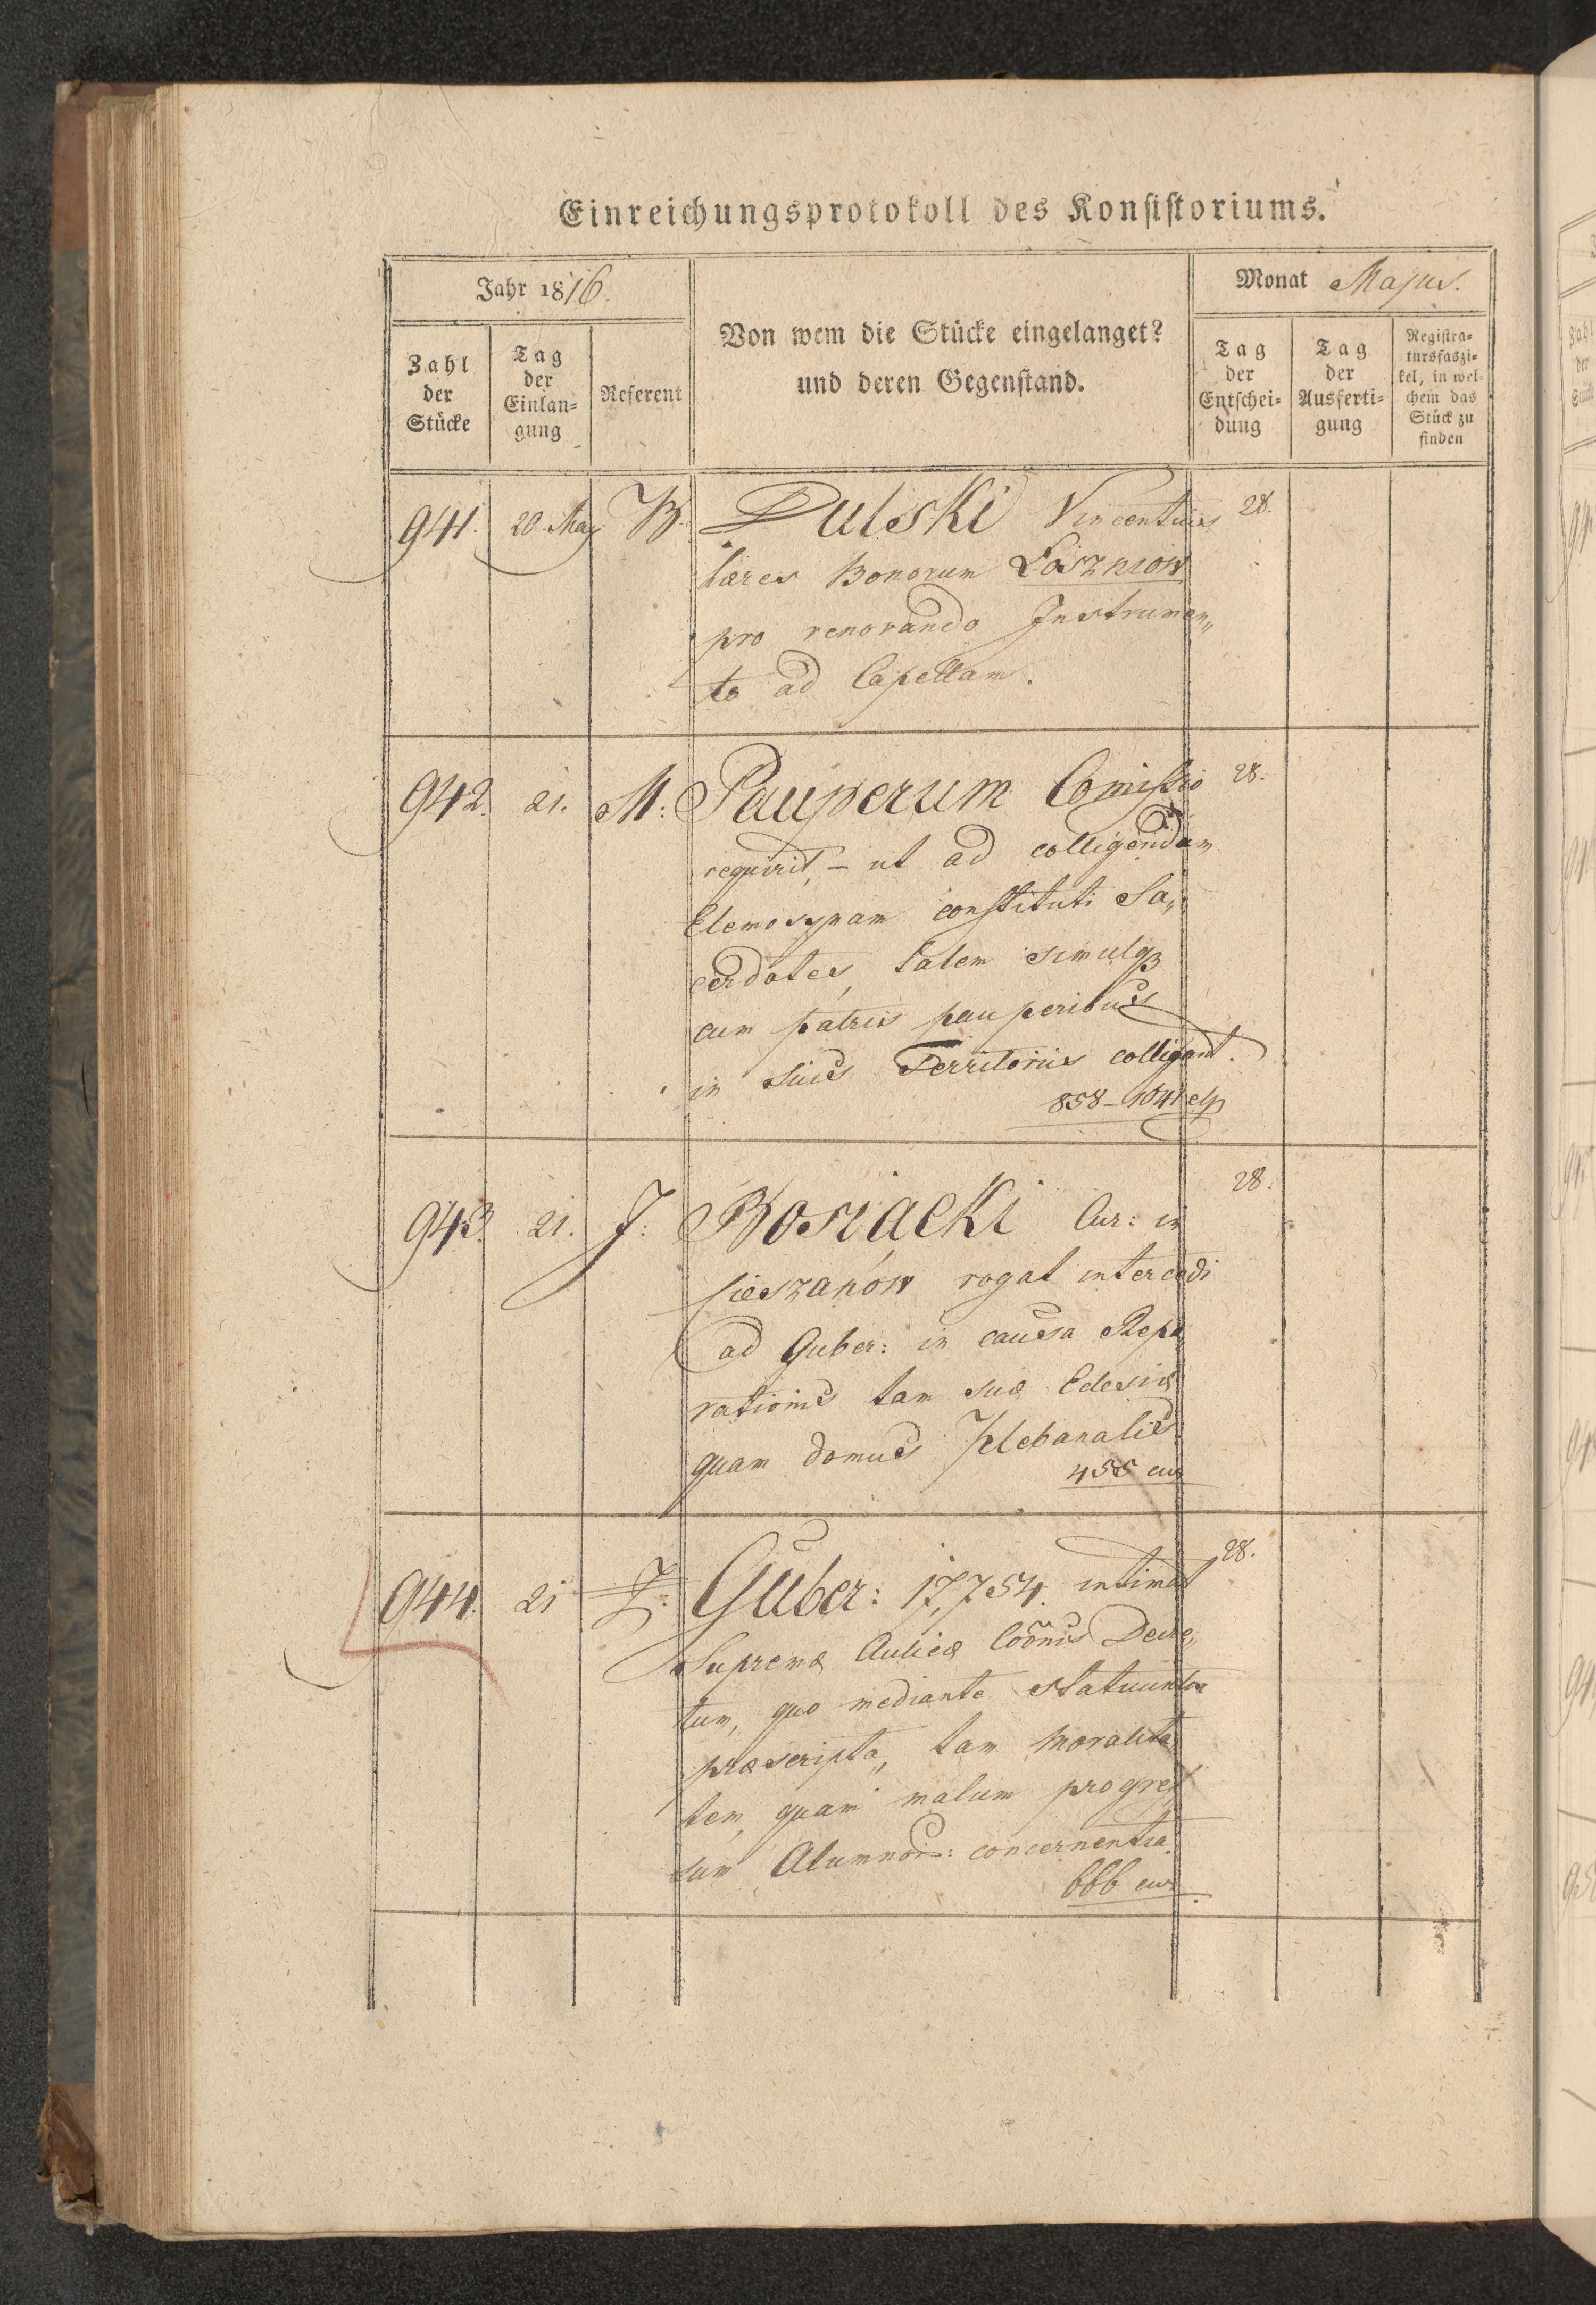 Einreichungsprotokoll des Konsistoriums.
Jahr 1816.
Von wem die Stücke eingelanget?
und deren Gegenstand.
Monat Majus.
Zahl
der
Stücke
Tag
der
Einlan=
gung
Referent
Tag
der
Entschei=
dung
Tag
der
Ausferti=
gung
Registra=
tursfaszi=
kel, in wel=
chem das
Stück zu
finden
941. 20. May B. Dulski Vincentius 28.
hæres Bonorum Łoszniow
pro renovando Instrumen„
to ad Capellam.
942. 21. M: Pauperum Comissio 28.
requirit, – ut ad colligendam
Elemosynam constituti Sa„
cerdotes, talem simulq
cum patris pauperibus
in suis Territoriis colligant.
858 – 1041
943. 21. J: Bosiacki Cur: in 28.
Cieszanów rogat intercedi
ad Guber: in causa Repa„
rationis tam suæ Eclesiæ
quam domus Plebanalis.
455 eur
944. 21 Guber: 17,754. intimat 28.
Supremæ Aulicæ Coõnis Decre„
tum, quo mediante statuuntur
præscripta, tam moralita„
tem, quam malum progres„
sum Alumnor: concernentia.
666 eur.